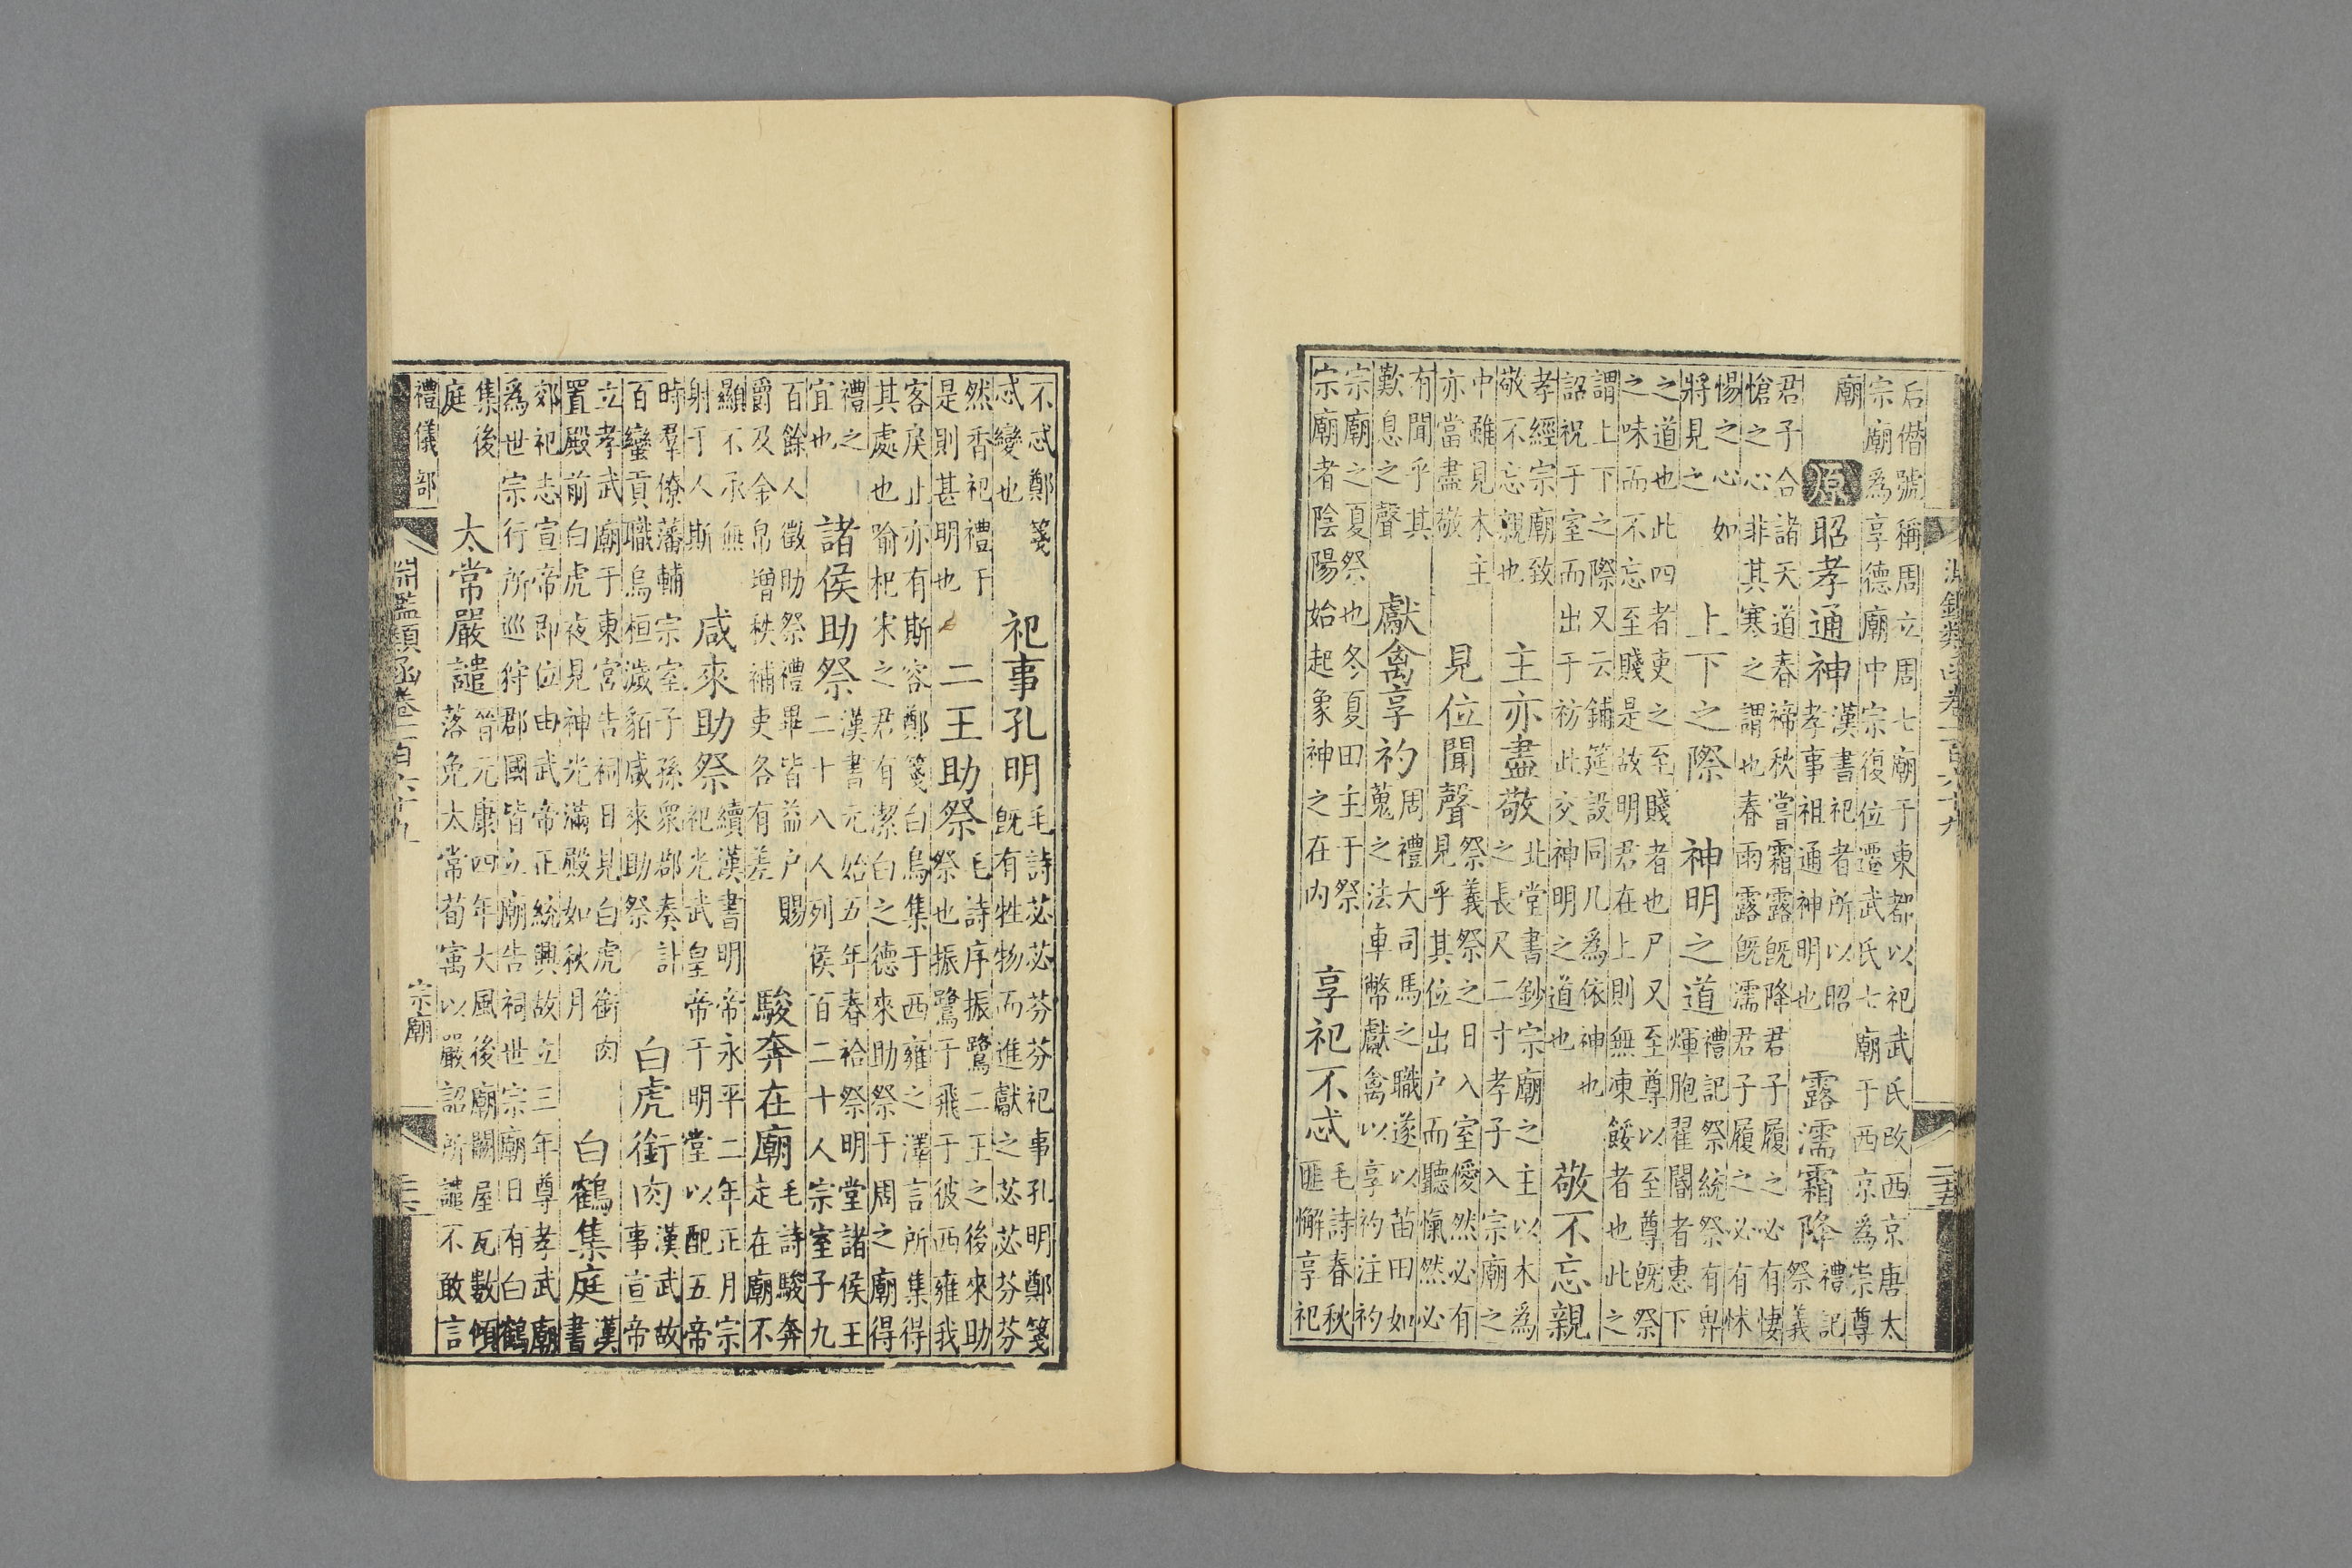 淵鑑類函卷一百六十九 二五
后僭號稱周立周七廟于東都以祀武氏改西京唐太宗廟為享德廟中宗復位遷武氏七廟于西京為崇尊
廟 原 昭孝通神 漢書祀者所以昭孝事祖通神明也 露濡霜降 禮記祭義
君子合諸天道春禘秋嘗霜露既降君子履之必有悽愴之心非其寒之謂也春雨露既濡君子履之必有怵
惕之心如將見之 上下之際 神明之道 禮記祭統祭有畀煇胞翟閽者惠下
之道也此四者吏之至賤者也尸又至尊以至尊既祭之味而不忘至賤是故明君在上則無凍餒者也此之
謂上下之際又云鋪筵設同几為依神也詔祝于室而出于祊此交神明之道也 敬不忘親
孝經宗廟致敬不忘親也 主亦盡敬 北堂書鈔宗廟之主以木為之長尺二寸孝子入宗廟之
中雖見木主亦當盡敬 見位聞聲 祭義祭之日入室僾然必有見乎其位出户而聽愾然必
有聞乎其歎息之聲 獻禽享礿 周禮大司馬之職遂以苗田如蒐之法車幣獻禽以享礿注礿
宗廟之夏祭也冬夏田主于祭宗廟者陰陽始起象神之在内 享祀不忒 毛詩春秋匪懈享祀
不忒鄭箋忒變也 祀事孔明 毛詩苾苾芬芬祀事孔明鄭箋既有牲物而進獻之苾苾芬芬
然香祀禮于是則甚明也 二王助祭 毛詩序振鷺二王之後來助祭也振鷺于飛于彼西雍我
客戾止亦有斯容鄭箋白鳥集于西雍之澤言所集得其處也喻杞宋之君有潔白之德來助祭于周之廟得
禮之宜也 諸侯助祭 漢書元始五年春祫祭明堂諸侯王二十八人列侯百二十人宗室子九
百餘人徵助祭禮畢皆益户賜爵及金帛增秩補吏各有差 駿奔在廟 毛詩駿奔走在廟不
顯不承無射于人斯 咸來助祭 續漢書明帝永平二年正月宗祀光武皇帝于明堂以配五帝
時羣僚藩輔宗室子孫衆郡奉計百蠻貢職烏桓濊貊咸來助祭 白虎銜肉 漢武故事宣帝
立孝武廟于東宫告祠日見白虎銜肉置殿前白虎夜見神光滿殿如秋月 白鶴集庭 漢書
郊祀志宣帝即位由武帝正統興故立三年尊孝武廟為世宗行所巡狩郡國皆立廟告祠世宗廟日有白鶴
集後庭 太常嚴譴 晉元康四年大風後廟闕屋瓦數傾落免太常荀寓以嚴詔所譴不敢言
禮儀部 淵鑑類函卷一百六十九 宗廟 二六